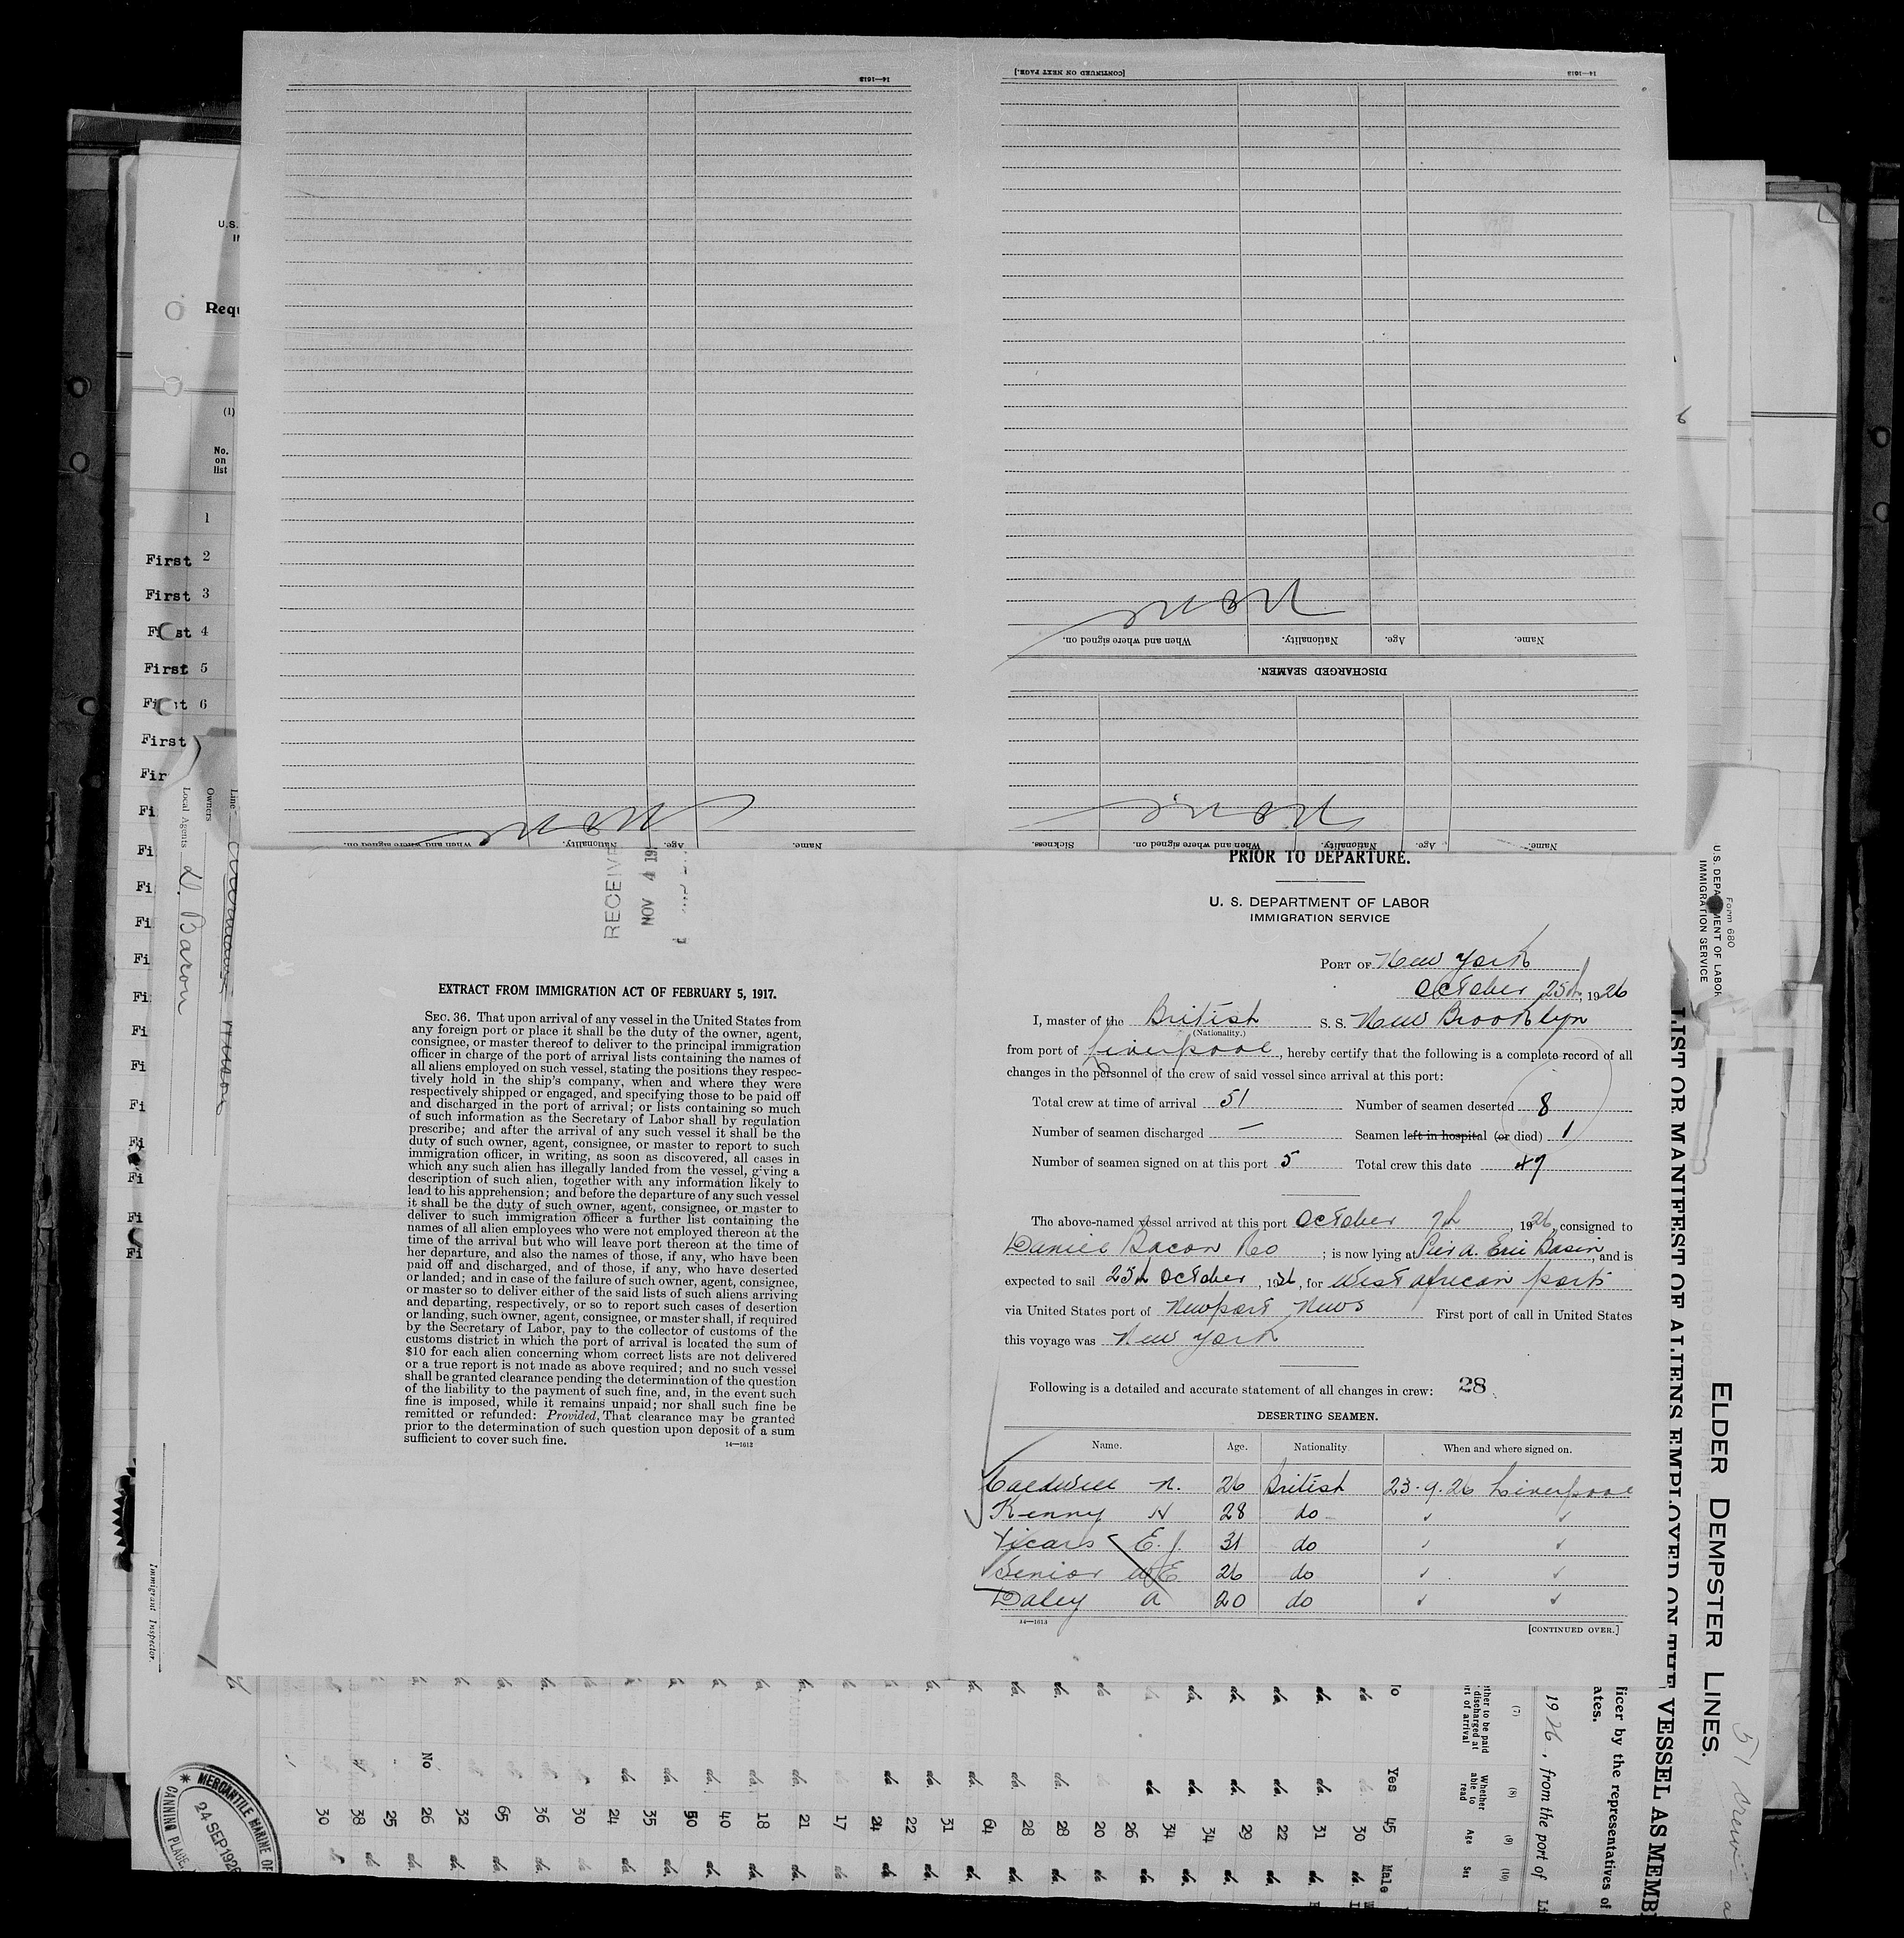 14—1613
[CONTINUED ON NEXT PAGE.]
14—1613
None
When and where signed on.
Nationality.
Age.
Name.
DISCHARGED SEAMEN.
None
None
When and where signed on.
Nationality.
Age.
Name.
Sickness.
When and where signed on.
Nationality.
Age.
Name.
PRIOR TO DEPARTURE.
U. S. DEPARTMENT OF LABOR
IMMIGRATION SERVICE
PORT OF New York
October 25th, 1926
I, master of the British S. S. New Brooklyn
(Nationality.)
from port of Liverpool, hereby certify that the following is a complete record of all
changes in the personnel of the crew of said vessel since arrival at this port:
Total crew at time of arrival 51 Number of seamen deserted 8
Number of seamen discharged — Seamen left in hospital (or died) 1
Number of seamen signed on at this port 5 Total crew this date 47
The above-named vessel arrived at this port October 7th, 1926, consigned to
Daniel Bacon Co ; is now lying at Pier A. Erie Basin, and is
expected to sail 25th October, 1926, for West African ports
via United States port of Newport News First port of call in United States
this voyage was New York
Following is a detailed and accurate statement of all changes in crew: 28
DESERTING SEAMEN.
Name. Age. Nationality. When and where signed on.
Caldwell N. 26 British 23.9.26 Liverpool
Kenny H 28 do
Vicars E. J. 31 do
Senior W E 26 do
Daley A 20 do
14—1613
[CONTINUED OVER.]
RECEIVE
NOV 4 19
EXTRACT FROM IMMIGRATION ACT OF FEBRUARY 5, 1917.
SEC. 36. That upon arrival of any vessel in the United States from
any foreign port or place it shall be the duty of the owner, agent,
consignee, or master thereof to deliver to the principal immigration
officer in charge of the port of arrival lists containing the names of
all aliens employed on such vessel, stating the positions they respec-
tively hold in the ship's company, when and where they were
respectively shipped or engaged, and specifying those to be paid off
and discharged in the port of arrival; or lists containing so much
of such information as the Secretary of Labor shall by regulation
prescribe; and after the arrival of any such vessel it shall be the
duty of such owner, agent, consignee, or master to report to such
immigration officer, in writing, as soon as discovered, all cases in
which any such alien has illegally landed from the vessel, giving a
description of such alien, together with any information likely to
lead to his apprehension; and before the departure of any such vessel
it shall be the duty of such owner, agent, consignee, or master to
deliver to such immigration officer a further list containing the
names of all alien employees who were not employed thereon at the
time of the arrival but who will leave port thereon at the time of
her departure, and also the names of those, if any, who have been
paid off and discharged, and of those, if any, who have deserted
or landed; and in case of the failure of such owner, agent, consignee,
or master so to deliver either of the said lists of such aliens arriving
and departing, respectively, or so to report such cases of desertion
or landing, such owner, agent, consignee, or master shall, if required
by the Secretary of Labor, pay to the collector of customs of the
customs district in which the port of arrival is located the sum of
$10 for each alien concerning whom correct lists are not delivered
or a true report is not made as above required; and no such vessel
shall be granted clearance pending the determination of the question
of the liability to the payment of such fine, and, in the event such
fine is imposed, while it remains unpaid; nor shall such fine be
remitted or refunded: Provided, That clearance may be granted
prior to the determination of such question upon deposit of a sum
sufficient to cover such fine.
14—1613
U.S.
Requ
(1)
No.
on
list
1
First 2
First 3
First 4
First 5
First 6
First
Line
Owners
Local Agents D. Baron
Immigrant Inspector.
Form 680
U.S. DEPARTMENT OF LABOR
IMMIGRATION SERVICE
LIST OR MANIFEST OF ALIENS EMPLOYED ON THE VESSEL AS MEMB
ELDER DEMPSTER LINES.
51 crew
ficer by the representatives of
ates.
1926, from the port of Li
(7) (8) (9) (10)
Whether able to read
Age
Sex
Yes 45 Male
No
30 38 25 26 32 65 36 30 24 35 50 40 18 21 17 24 22 31 64 28 28 20 26 34 34 29 22 31 30 45
MERCANTILE MARINE OF
24 SEP 1926
CANNING PLACE